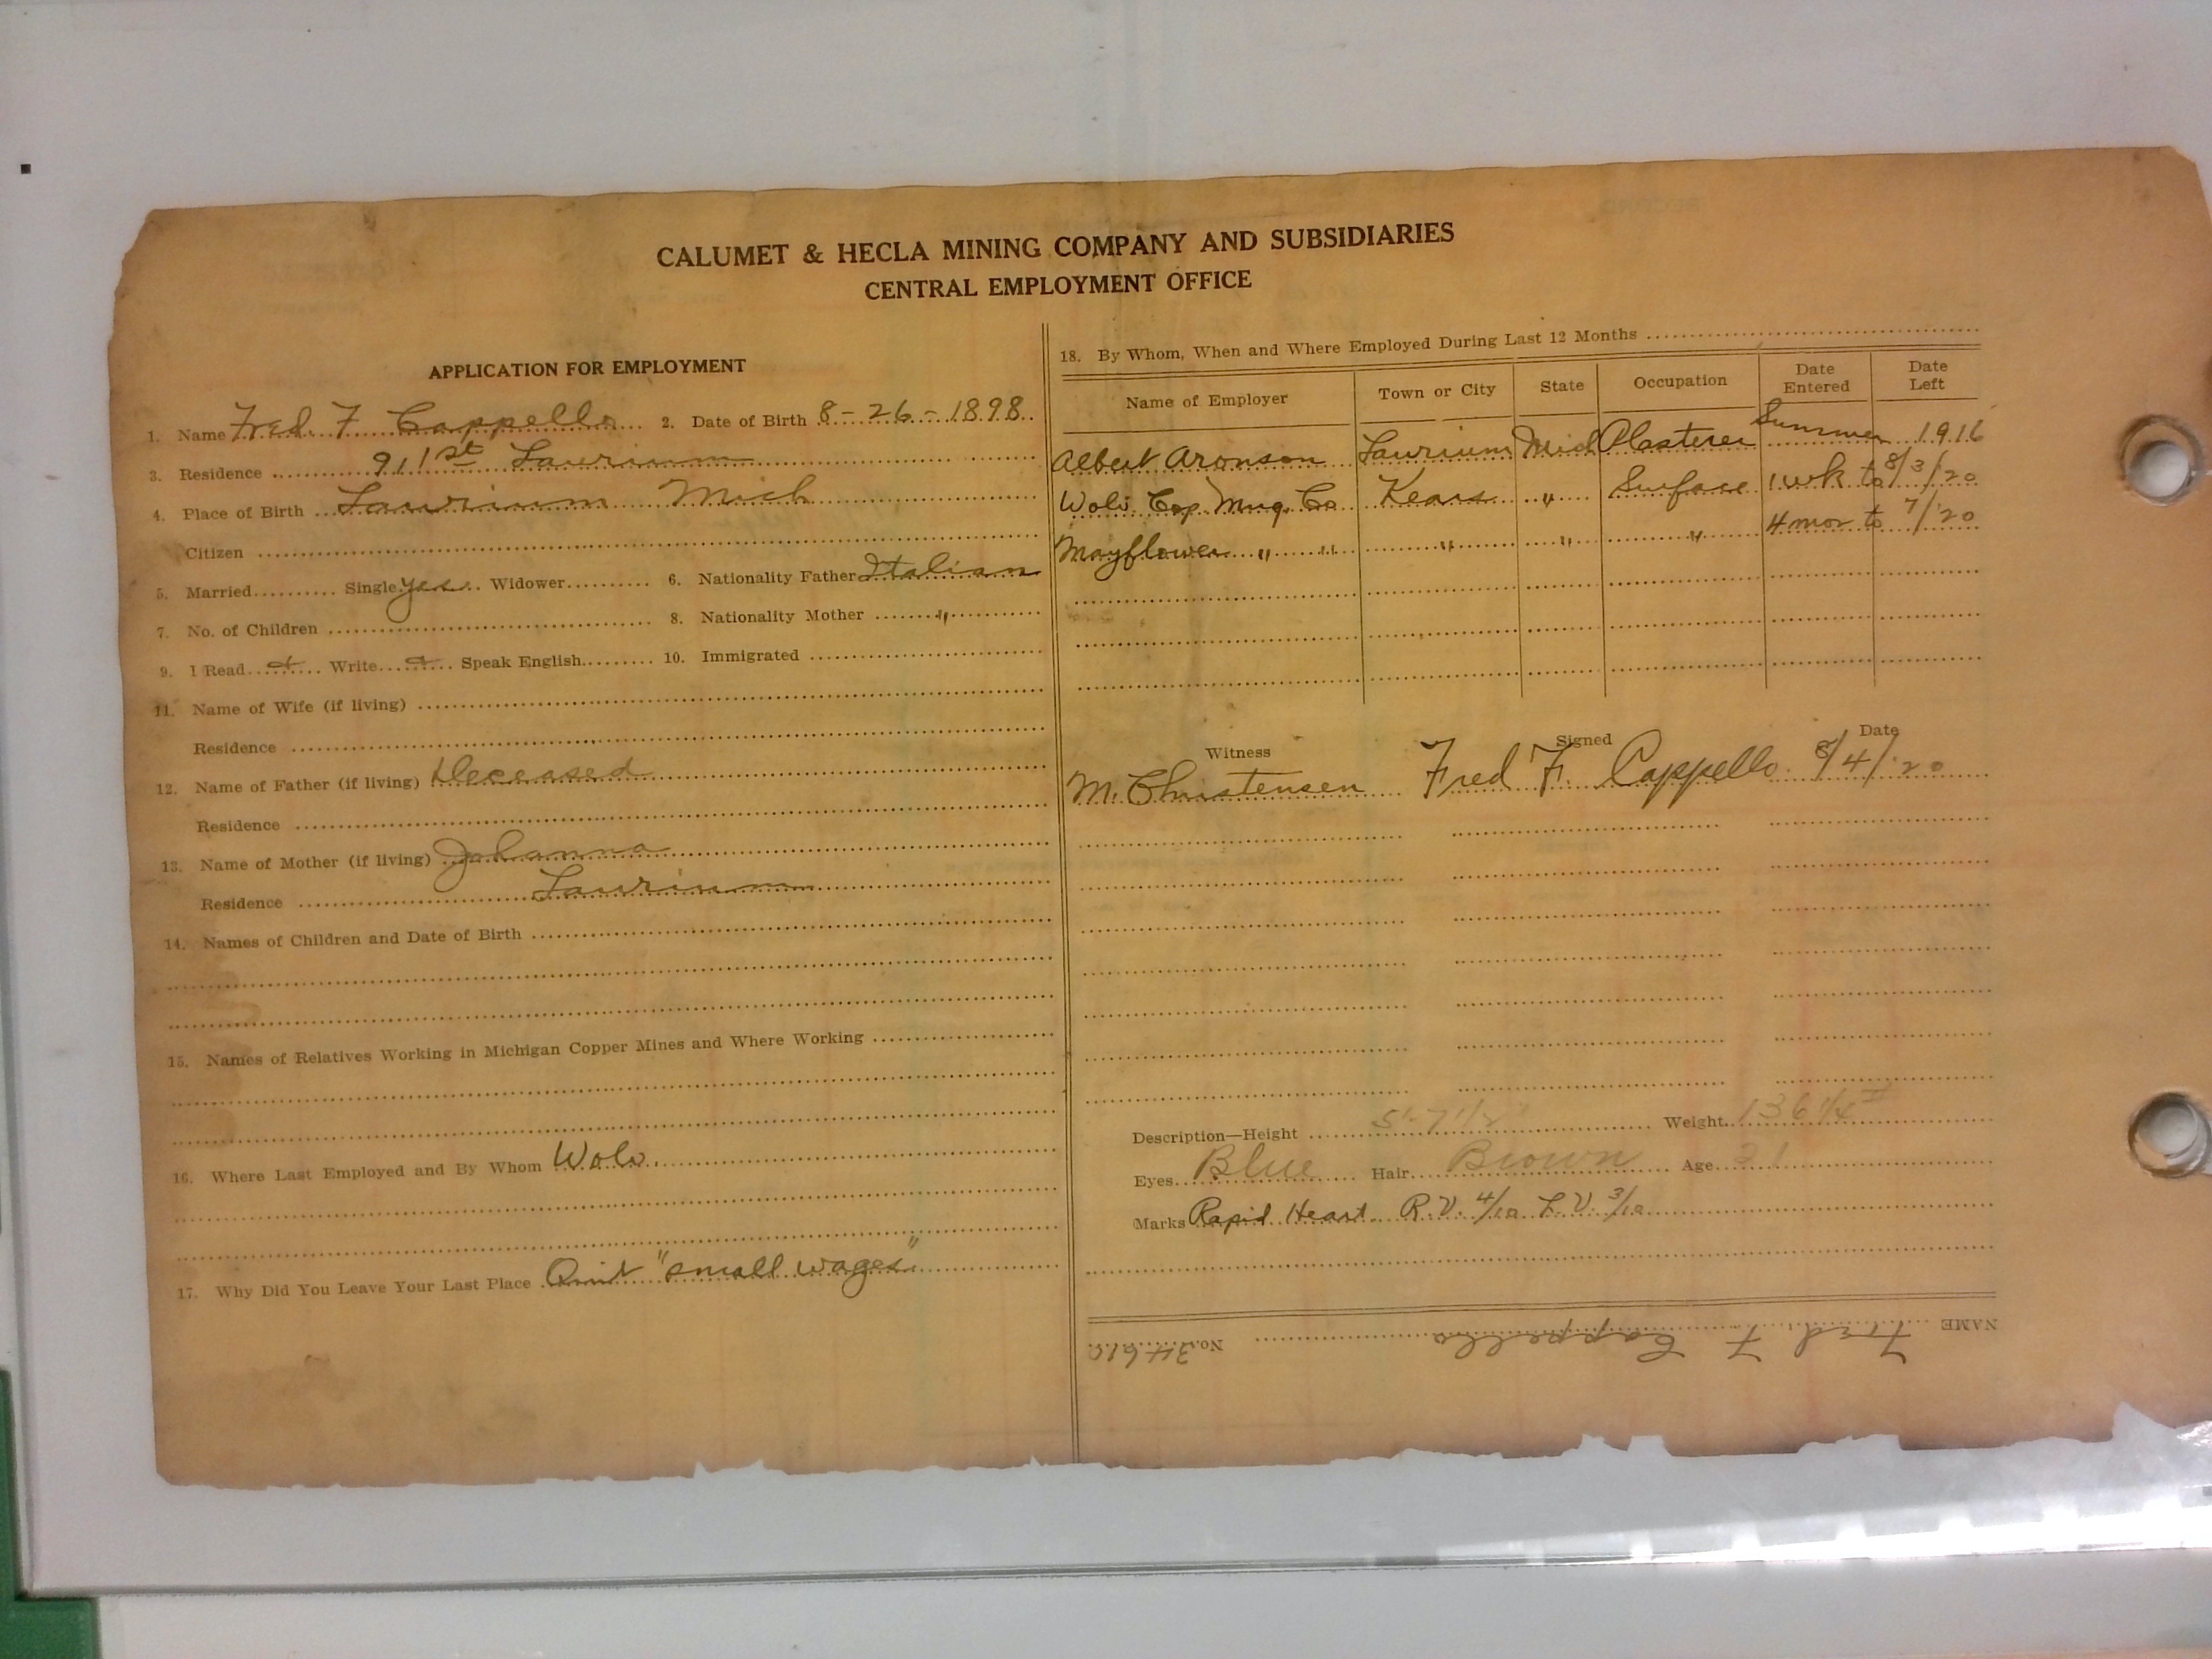 CALUMET & HECLA MINING COMPANY AND SUBSIDIARIES
CENTRAL EMPLOYMENT OFFICE
APPLICATION FOR EMPLOYMENT
1. Name Fred. F Cappello 2. Date of Birth 8-26-1898
3. Residence 911st Laurium
4. Place of Birth Laurium Mich
Citizen
5. Married Single yes Widower 6. Nationality Father Italian
7. No. of Children 8. Nationality Mother "
9. I Read Write Speak English 10. Immigrated
11. Name of Wife (if living)
Residence
12. Name of Father (if living) Deceased
Residence
13. Name of Mother (if living) Johanna
Residence Laurium
14. Names of Children and Date of Birth
15. Names of Relatives Working in Michigan Copper Mines and Where Working
16. Where Last Employed and By Whom Wolv.
17. Why Did You Leave Your Last Place Quit "small wages"
18. By Whom, When and Where Employed During Last 12 Months
Name of Employer Town or City State Occupation Date Entered Date Left
Albert Aronson Laurium Mich Plasterer Summer 1916
Wolv. Cop Mng. Co Kears " Surface 1 wk to 8/3/20
Mayflower " " " " " 4 mos to 7/20
Witness Signed Date
M. Christensen Fred F. Cappello 8/4/20
Description—Height 5'-7 1/2" Weight 136 1/4#
Eyes Blue Hair Brown Age 21
Marks Rapid Heart R.V. 4/10 L.V. 3/10
NAME Fred F Cappello No.